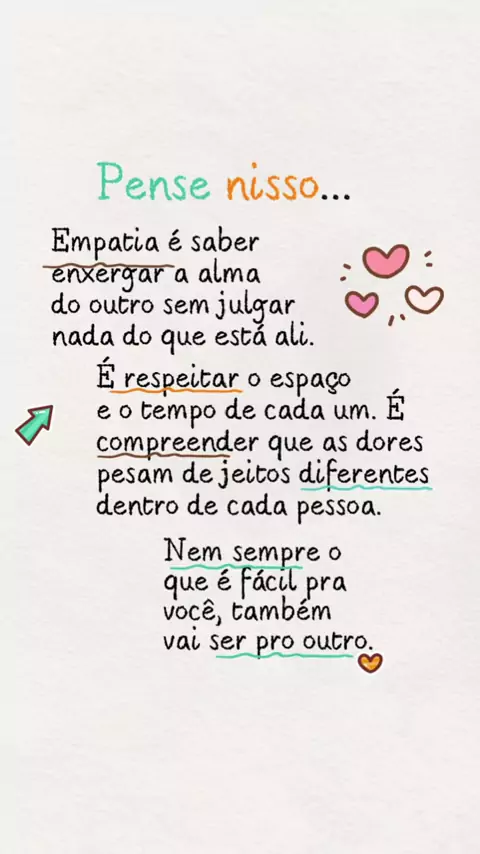 Pense nisso...
Empatia é saber
enxergar a alma
do outro sem julgar
nada do que está ali.
É respeitar o espaço
e o tempo de cada um. É
compreender que as dores
pesam de jeitos diferentes
dentro de cada pessoa.
Nem sempre o
que é fácil pra
você, também
vai ser pro outro.